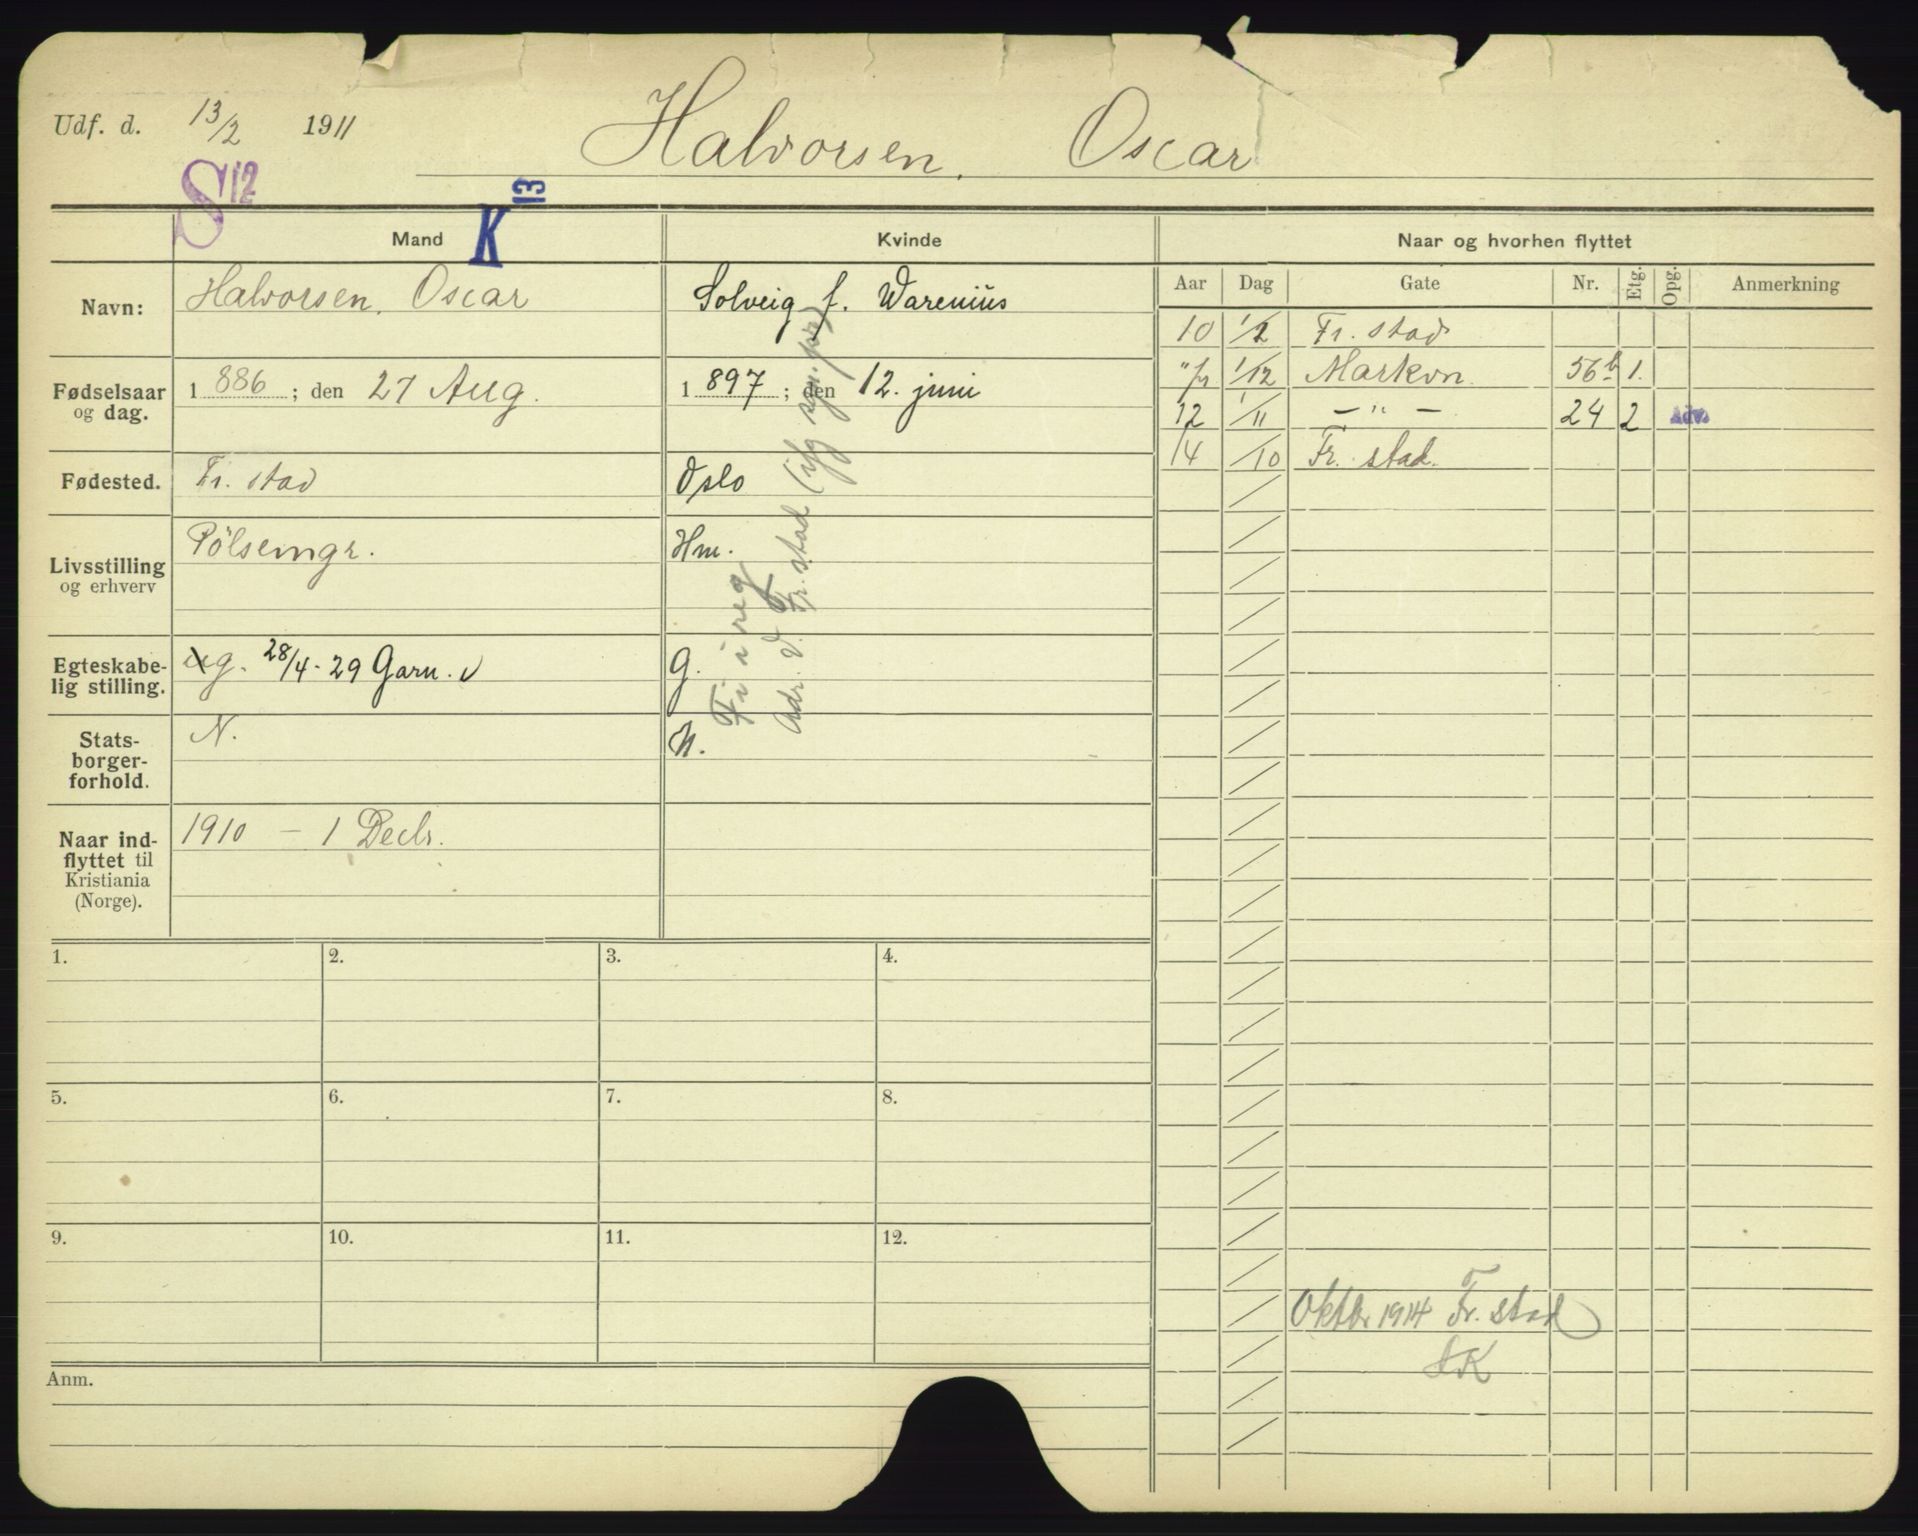 Udf. d. 13/2 1911
Halvorsen, Oscar
S 12
K 13
Mand
Kvinde
Naar og hvorhen flyttet
Aar Dag Gate Nr. Etg. Opg. Anmerkning
Navn: Halvorsen, Oscar
Solveig f. Warenius
Fødselsaar og dag. 1 886 ; den 27 Aug.
1 897 ; den 12. juni
Fødested. Fr. stad
Oslo
Livsstilling og erhverv Pölsemgr.
Hm.
Egteskabe-
lig stilling. ug. 28/4-29 Garn. v
g.
Stats-
borger-
forhold. N.
N.
Naar ind-
flyttet til
Kristiania
(Norge). 1910 – 1 Decbr.
Fr i reg
Adr. v. Fr. stad
10 1/2 Fr. stad
1/12 Markvn. 56b 1.
12 1/11 – " – 24 2 Adv.
14 /10 Fr. stad.
1. 2. 3. 4.
5. 6. 7. 8.
9. 10. 11. 12.
Oktbr 1914 Fr. stad
Anm.